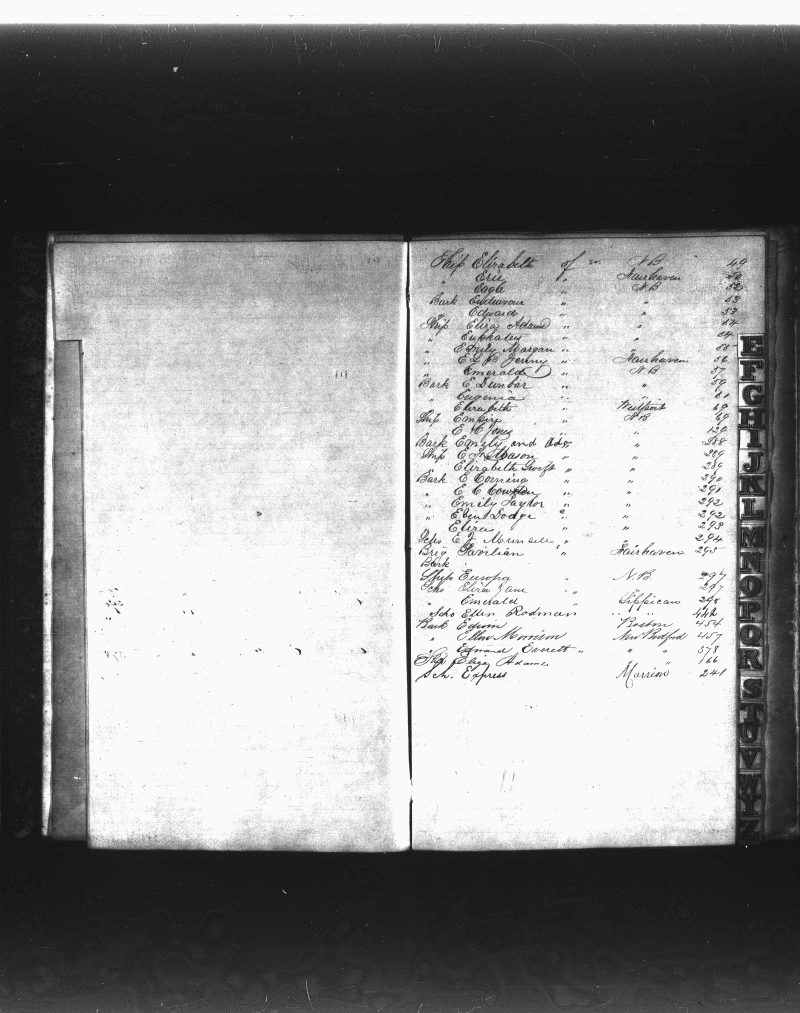 Ship Elizabeth of N B 49
" Erie " Fairhaven 50
" Eagle " N B 52
Bark Endeavour " " 53
" Edward " " 53
Ship Eliza Adams " " 54
" Euphrates " " 54
" Emily Morgan " " 55
" E L B Jenny " Fairhaven 56
" Emerald " N B 57
Bark E Dunbar " " 59
" Eugenia " " 61
" Elizabeth " Westport 69
Ship Empire " N B 69
" E C Jones " " 129
Bark Emily and " " 288
Ship E F Mason " " 289
Elizabeth Swift " " 289
Bark E Corning " " 290
" E C Cowdin " " 291
" Emily Taylor " " 292
" Eben Dodge " " 292
" Eliza " " 293
Scho E " " 294
Brig Pavilian " Fairhaven 295
Bark
Ship Europa " N. B 297
Scho Eliza Jane " " 297
" Emerald " Sippican 298
Scho Ellen Rodman " " 442
Bark Edwin Boston 454
" Ellen Morrison New Bedford 457
" Edmund Everett " " " 378
Ship Eliza Adams " 166
Sch. Express Marrion 241
E
F
G
H
I
J
K
L
M
N
O
P
Q
R
S
T
U
V
W
Y
Z